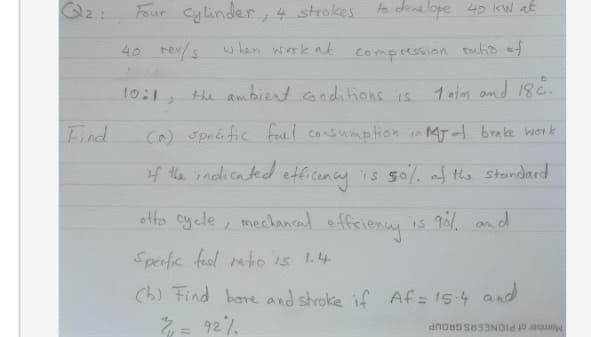 Q2: Four cylinder, 4 strokes to develope 40 kW at
40 rev/s when work at compression ratio of
10:1, the ambient conditions is 1 atm and 18°C.
Find (a) specific fuel consumption in MJ of brake work
if the indicated efficency is 50% of the standard
otto cycle, mechancal efficiency is 90% and
Specific fuel ratio is 1.4
(b) Find bore and stroke if Af = 15.4 and
= 92%.
Member of PIONEERS GROUP